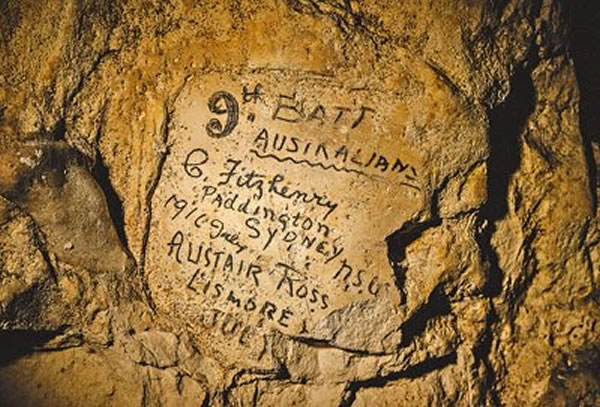 9th BATT
AUSTRALIANS
C. Fitzhenry
Paddington
SYDNEY N.S.W
1916 July
ALISTAIR ROSS
LISMORE
JULY